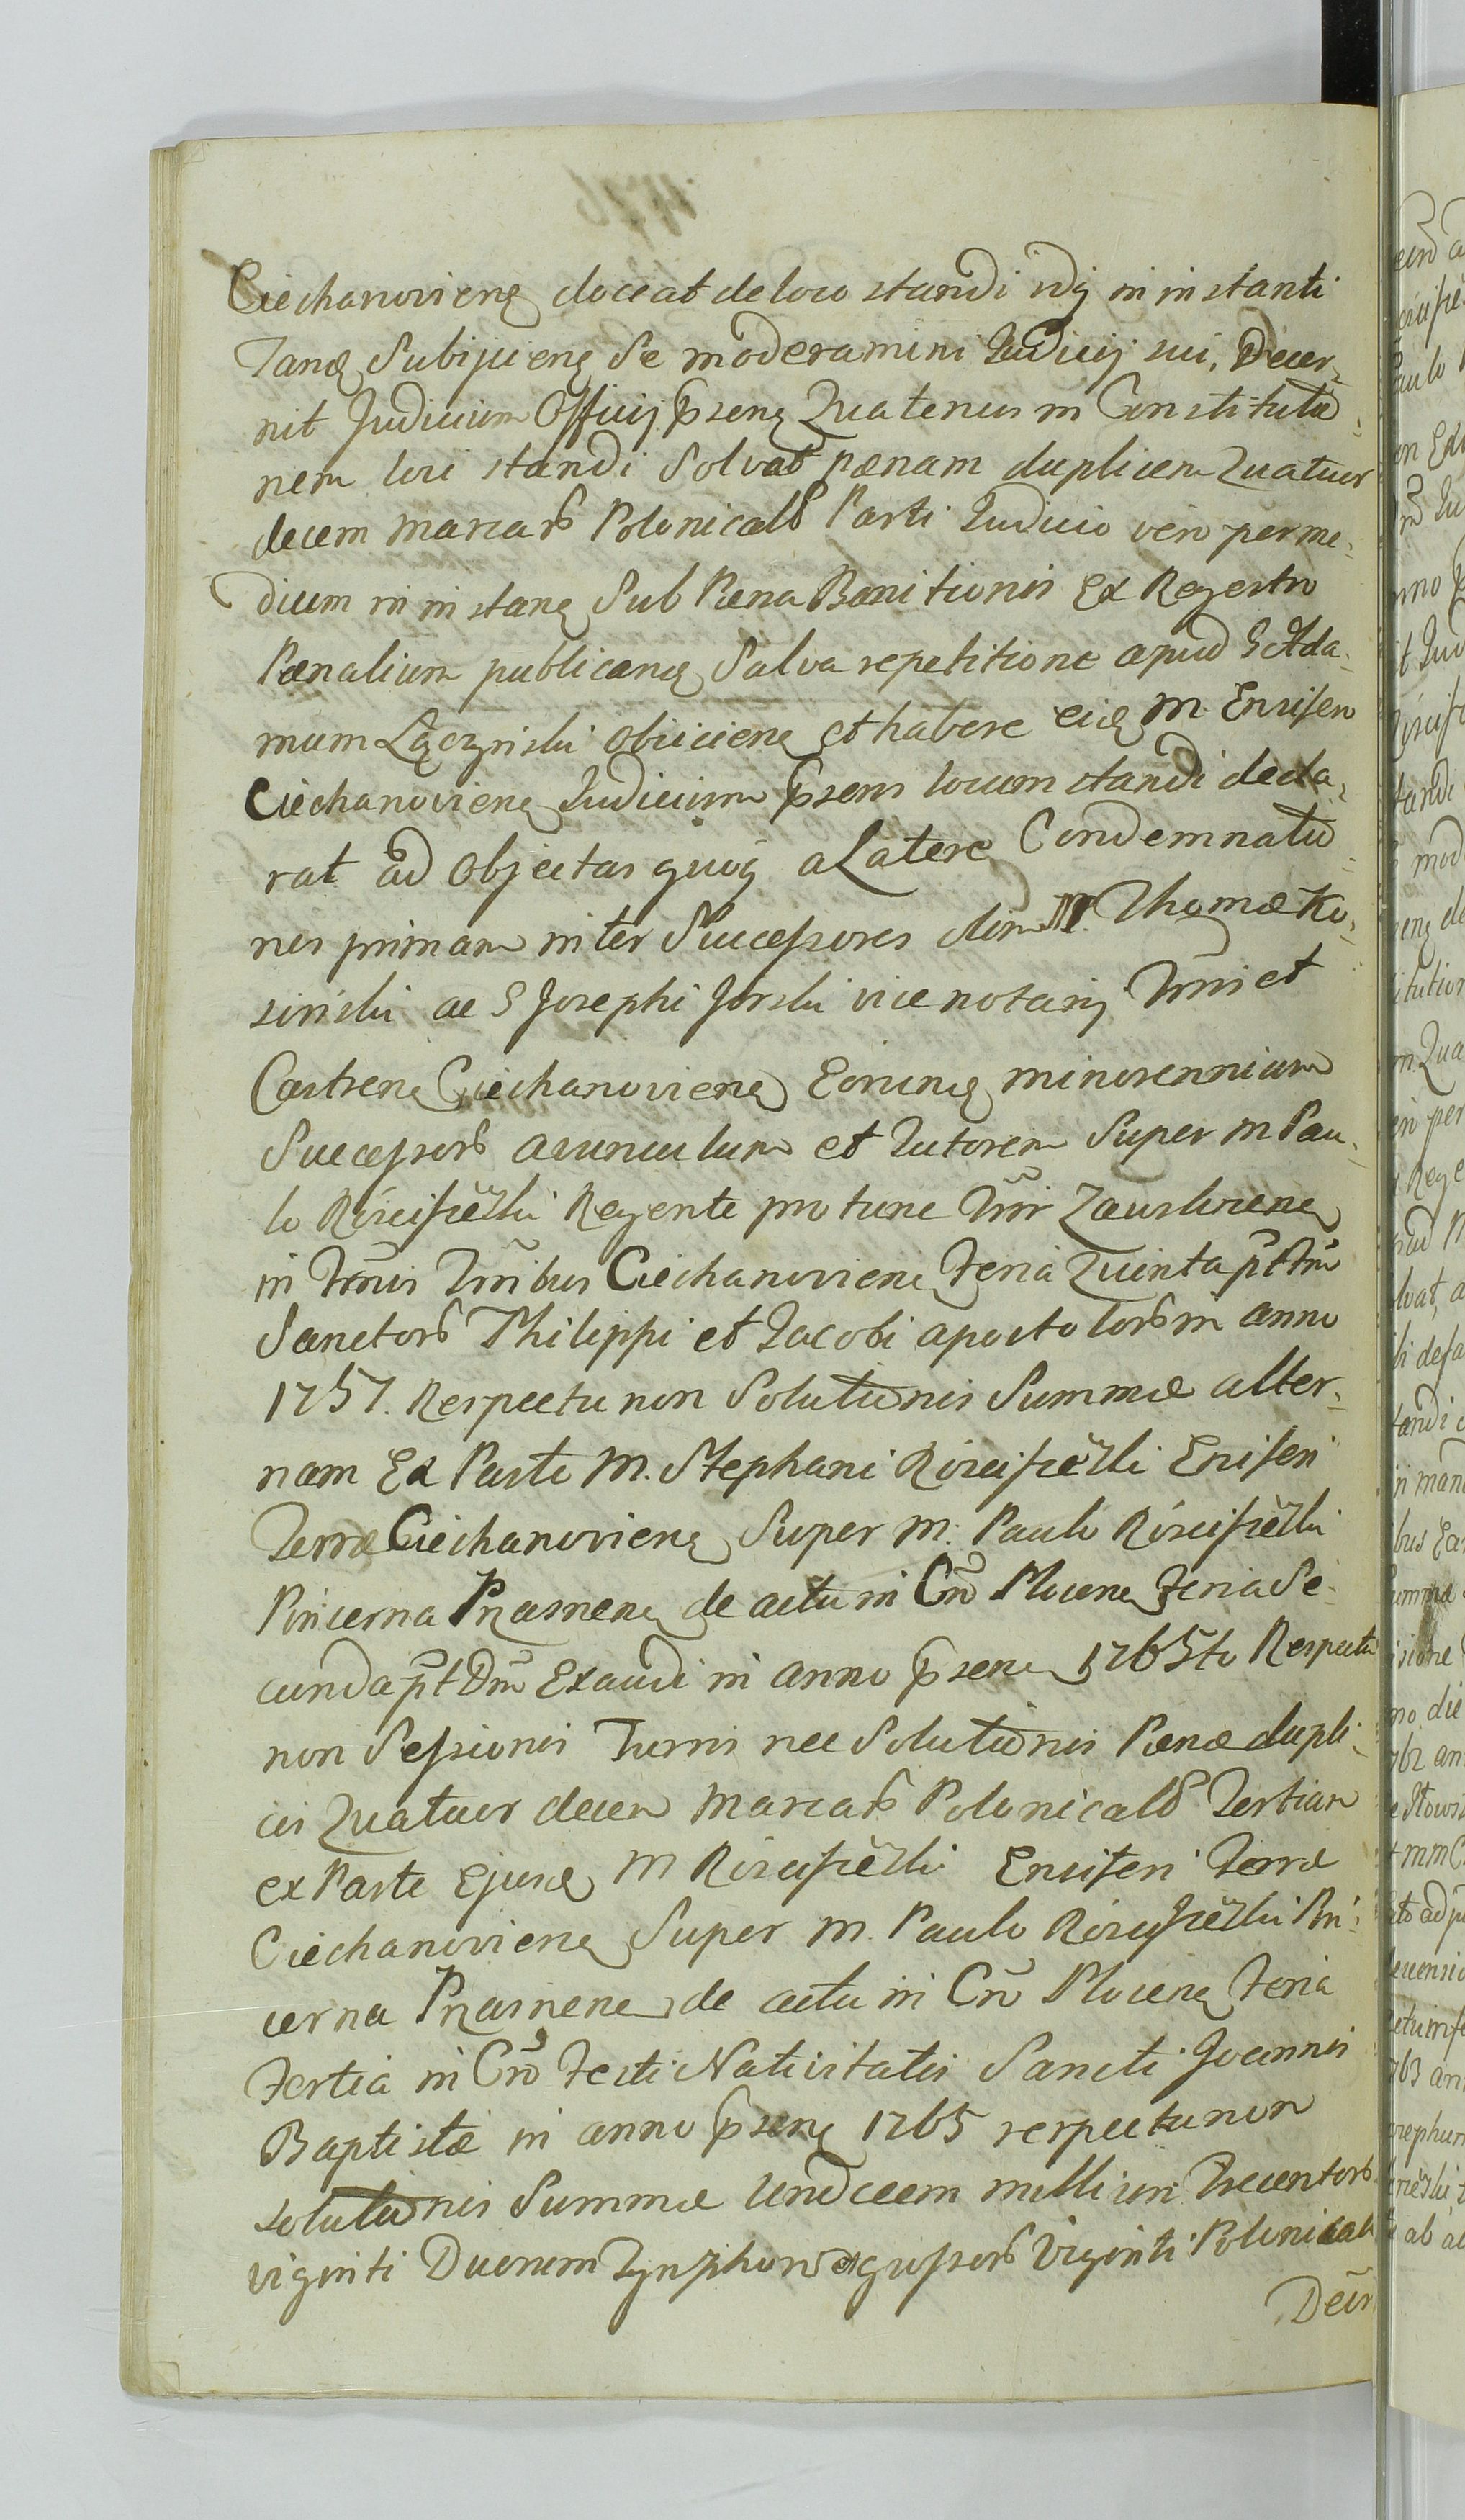 Ciechanoviens doceat de loco standi idq in instanti
Tand Subijciens Se moderamini Judicij sui, Decer-
nit Judicium Officij psens Quatenus in Constitutio-
nem loci standi Solvat pænam duplicem Quatuor
decem marcarum Polonicalium Parti Judicio vero per me-
dium in instanti Sub Pæna Banitionis Ex Regestro
Pænalium publicans Salva repetitione apud G Ada-
mum Łączynski Obiiciens et habere eid M. Ensifero
Ciechanoviens Judicium psens locum standi decla-
rat ad Objectas quoq a Latere Condemnatio-
nes primam inter Successores olim M. Thomæ Ko-
sinski ac G Josephi Gorski vice notarij Trri et
Castrens Ciechanoviens Eorund minorennium
Successorum avunculum et Tutorem Super M Pau-
lo Rosciszewski Regente pro tunc Trri Zauskrzens
in Trmis Trribus Ciechanoviens Feria Quinta pt Ftm
Sanctorum Philippi et Jacobi apostolorum in anno
1757. Respectu non Solutionis Summæ alter-
nam Ex Parte M. Stephani Rosciszewski Ensiferi
Terræ Ciechanoviens Super M. Paulo Rosciszewski
Pincerna Prasnens de actu in Cro Plocens Feria Se-
cunda pt Dm Exaudi in anno psens 1765to Respectu
non Sessionis Turris nec Solutionis Pænæ dupli-
cis Quatuor decem Marcarum Polonicalium Tertiam
ex Parte Ejusd M Rosciszewski Ensiferi Terræ
Ciechanoviens Super M. Paulo Rosciszewski Pin-
cerna Prasnens de actu in Cro Plocens Feria
Tertia in Cro Festi Nativitatis Sancti Joannis
Baptistæ in anno psens 1765 respectu non
solutionis Summæ Undecem millium Trecentorum
viginti Duorum Tynphorum et grossorum Viginti Polonicali
Decr